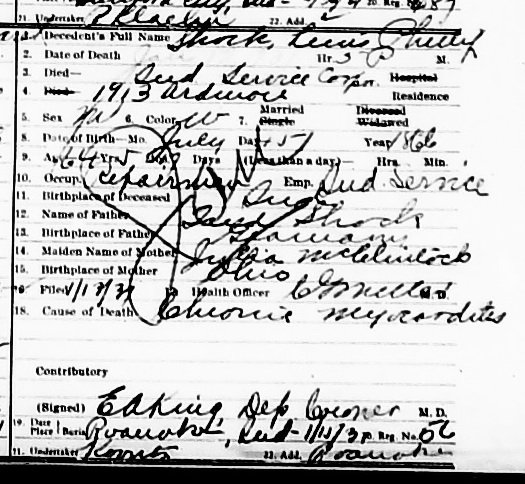 21. Undertaker 22. Add.
1. Decedent's Full Name Shock, Lewis Philip
2. Date of Death Hr. 3 P M.
3. Died— Ind Service Corpor. Hospital
4. Died— 1913 Ardmore Residence
5. Sex M 6. Color W 7. Married Single Diseased Widowed
8. Date of Birth—Mo. July Day 51 Year 1866
9. Age 64 Yrs 5 Days (Less than a day)— Hrs. Min.
10. Occup. repairman Emp. Ind Service
11. Birthplace of Deceased Ind
12. Name of Father Shock
13. Birthplace of Father
14. Maiden Name of Mother Julia McClintock
15. Birthplace of Mother Ohio
16. Filed 1/13/31 17. Health Officer M. D.
18. Cause of Death Chronic myocardites
Contributory
(Signed) E A King Dep Coroner M. D.
19. Date Place Burial Roanoke, Ind— 20. Reg. No. 56
21. Undertaker 22. Add. Roanoke